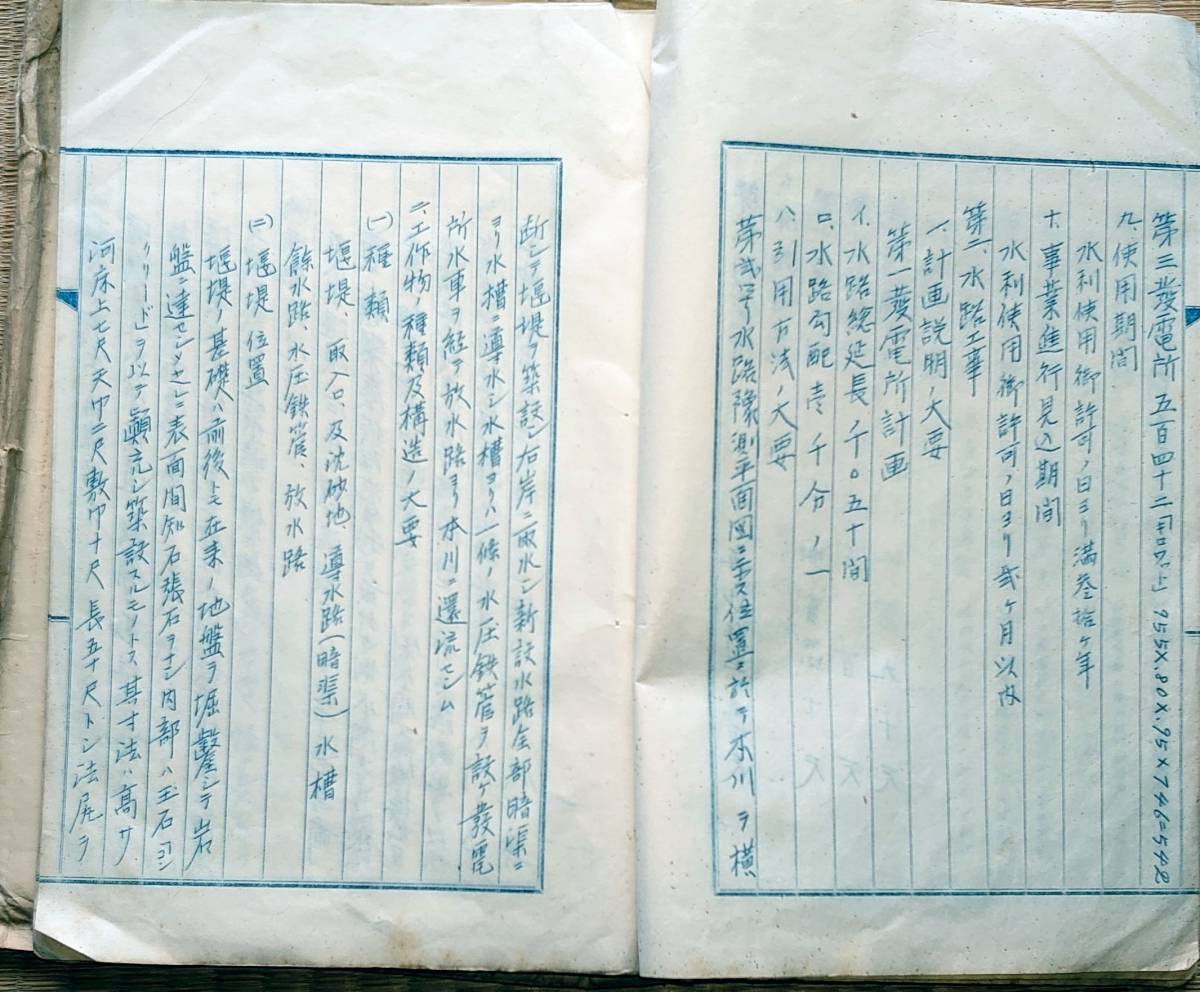 第三發電所 五百四十二「キロワット」 955×.80×.95×746=542
九、使用期間
水利使用御許可ノ日ヨリ満叁拾ケ年
十、事業進行見込期間
水利使用御許可ノ日ヨリ貳ケ月以内
第二、水路工事
一、計画説明ノ大要
第一發電所計画
イ、水路総延長千〇五十間
ロ、水路勾配壱千分ノ一
ハ、引用方法ノ大要
第貳号水路豫測平面図ニ示ス位置ニ於テ本川ヲ横
断シテ堰堤ヲ築設シ右岸ニ取水シ新設水路全部暗渠ニ
ヨリ水槽ニ導水シ水槽ヨリハ一條ノ水圧鉄管ヲ設ケ發電
所水車ヲ経テ放水路ヨリ本川ニ還流セシム
二、工作物ノ種類及構造ノ大要
(一)種類
堰堤、取入口、及沈砂地 導水路(暗渠)水槽
餘水路、水圧鉄管、放水路
(二)堰堤位置
堰堤ノ基礎ハ前後トモ在来ノ地盤ヲ堀鑿シテ岩
盤ニ達セシメ之レニ表面間知石張石ヲナシ内部ハ玉石「コン
クリード」ヲ以テ顚充シ築設スルモノトス其寸法ハ高サ
河床上七尺天巾二尺敷巾十尺長五十尺トシ法尻ヲ